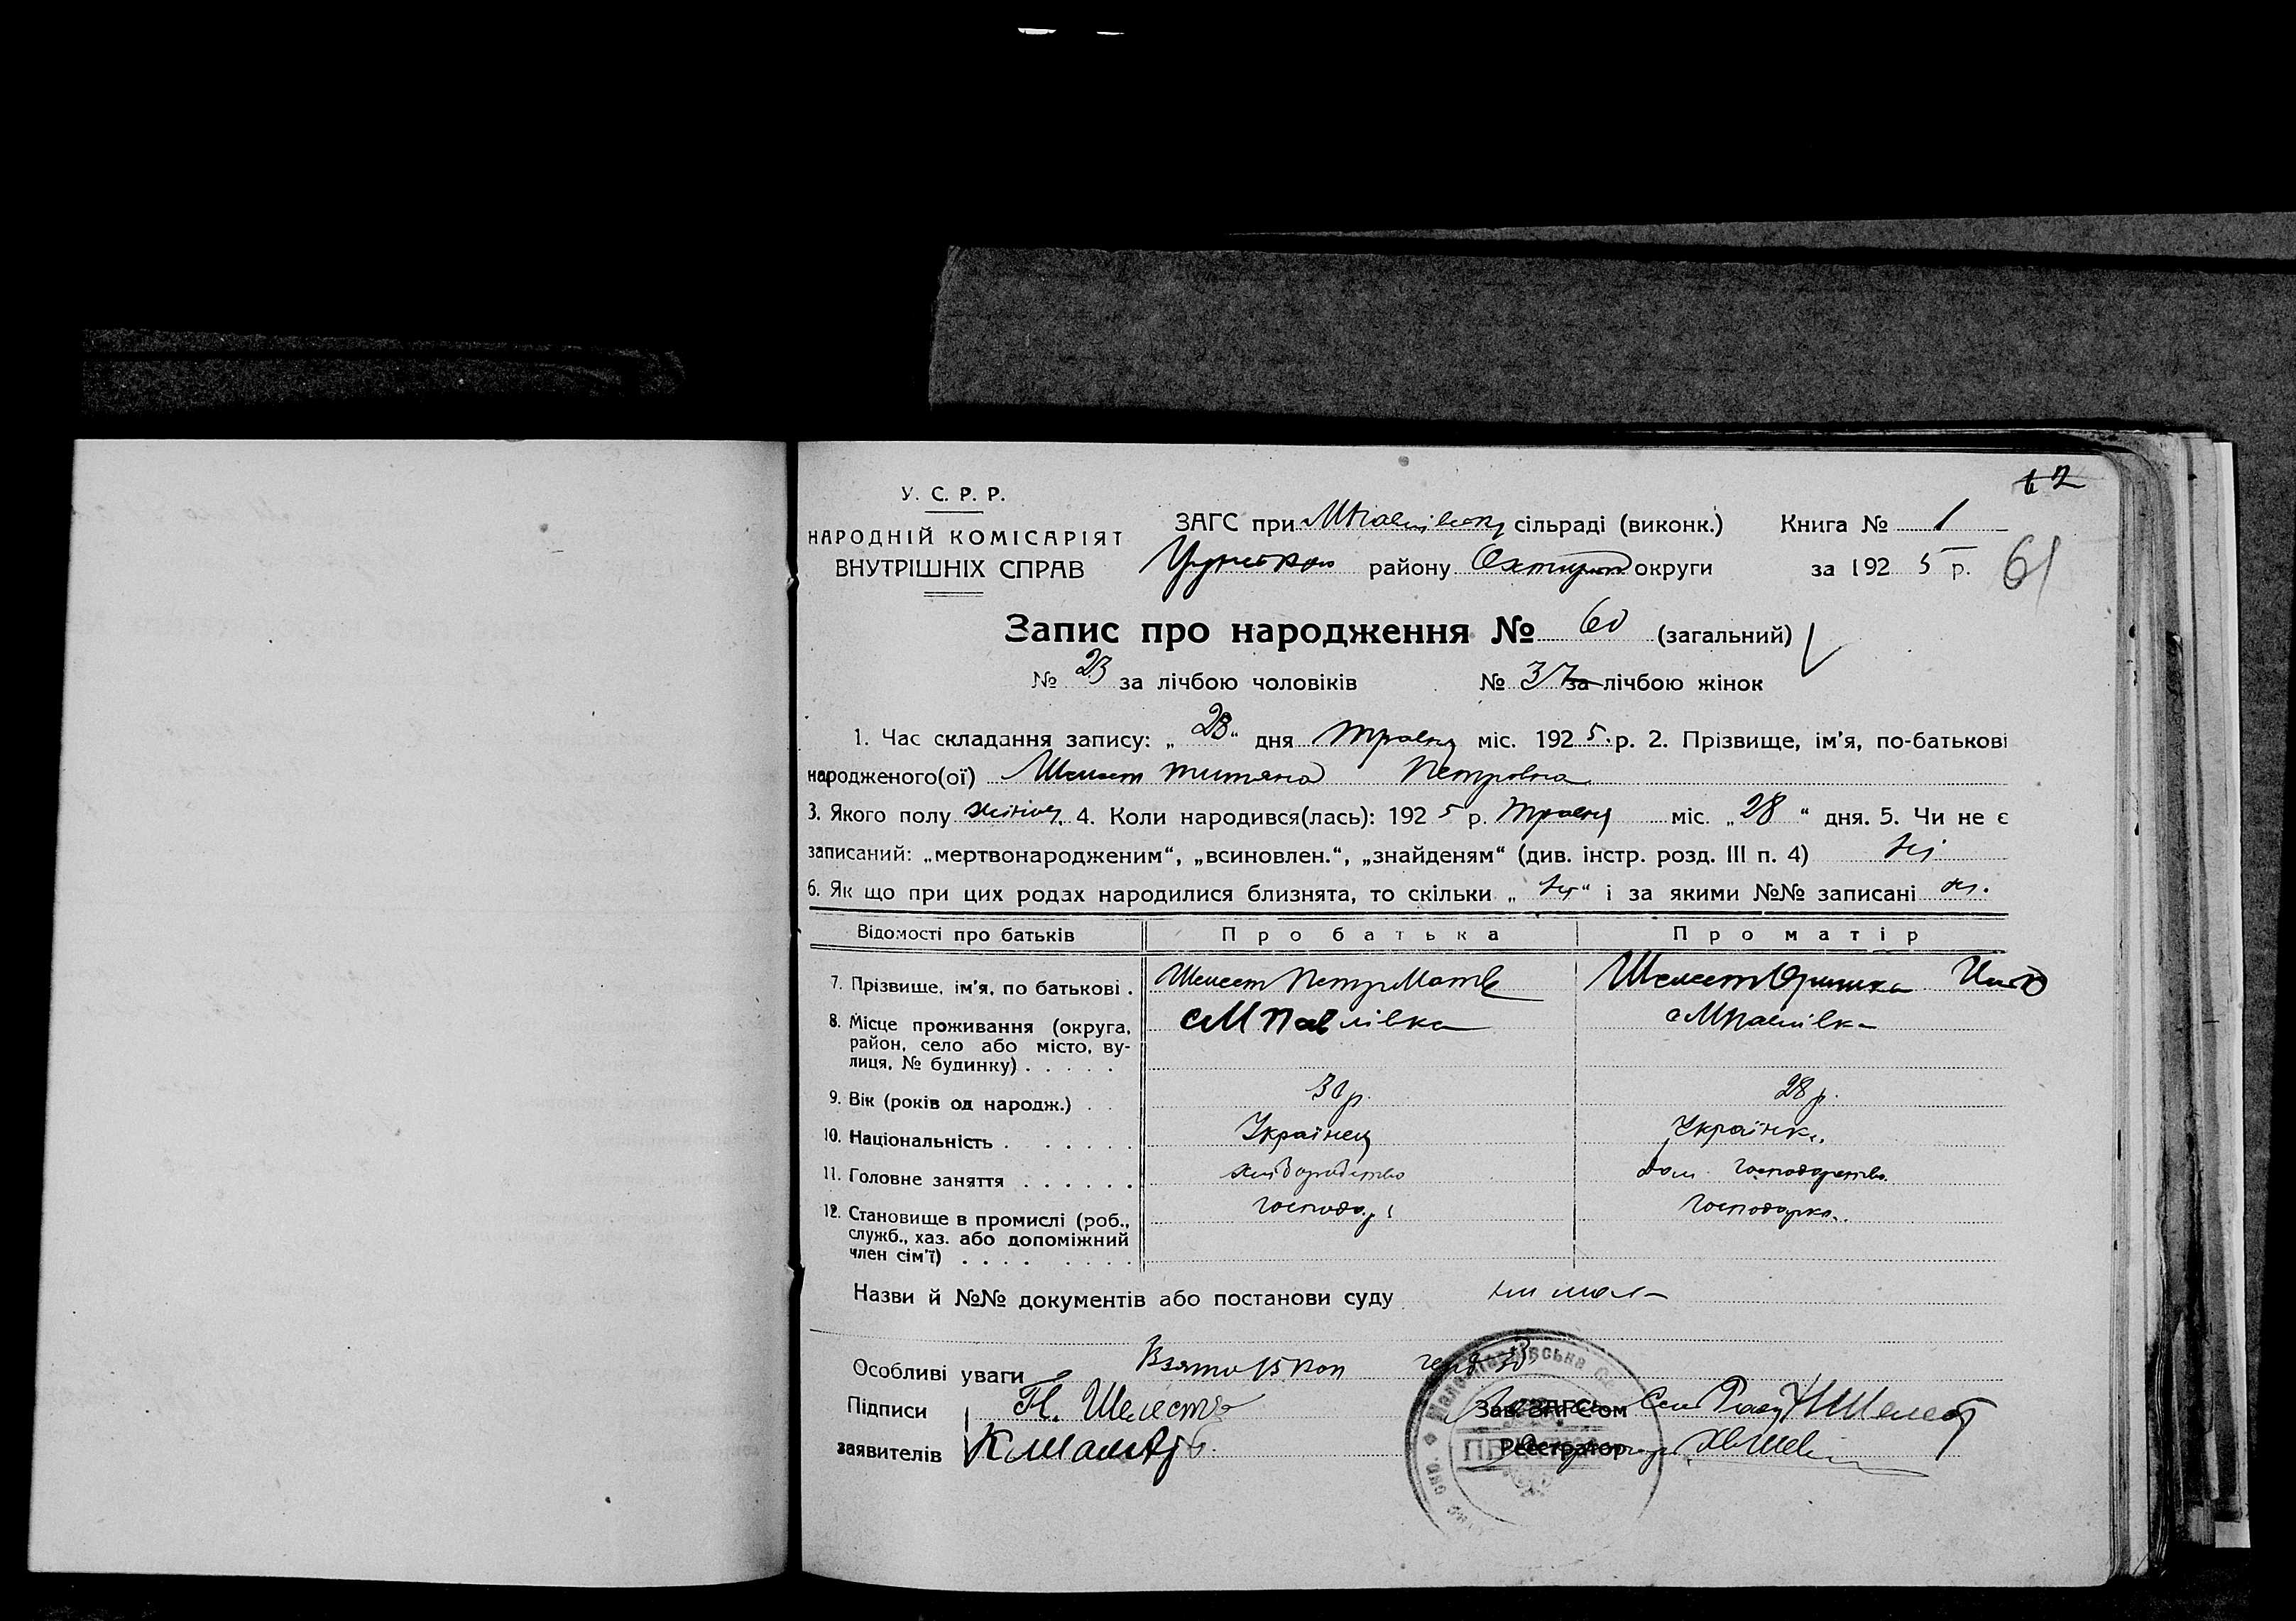 62
У. С. Р. Р.
НАРОДНІЙ КОМІСАРІЯТ
ВНУТРІШНІХ СПРАВ
ЗАГС при сільраді (виконк.) Книга № 1
району Охтирськ округи за 1925 р. 61
Запис про народження № 60 (загальний)
№ 23 за лічбою чоловіків № 37 за лічбою жінок
1. Час складання запису: „28“ дня травня міс. 1925 р. 2. Прізвище, ім’я, по-батькові
народженого(ої) Шелест Титяна Петровна
3. Якого полу жіночу 4. Коли народився(лась): 1925 р. травня міс. „28“ дня. 5. Чи не є
записаний: „мертвонародженим“, „всиновлен.“, „знайденям“ (див. інстр. розд. III п. 4) ні
6. Як що при цих родах народилися близнята, то скільки „ні“ і за якими №№ записані
Відомості про батьків Про батька Про матір
7. Прізвище, ім’я, по батькові . Шелест Петр Матв Шелест Оришка
8. Місце проживання (округа, с М Павлівка с М Павлівка
район, село або місто, ву-
лиця, № будинку) . . . . .
9. Вік (років од народж.) . . 30 р. 28 р.
10. Національність . . . . . Українец Українка
11. Головне заняття . . . . . . хліборобство дом. господарство
12. Становище в промислі (роб., господарь господарка
служб., хаз. або допоміжний
член сім’ї) . . . . . . . .
Назви й №№ документів або постанови суду не мает
Особливі уваги Взято 15 коп
Підписи П. Шелест Зав. ЗАГС’ом Сел Ради Шелест
заявителів Реєстратор